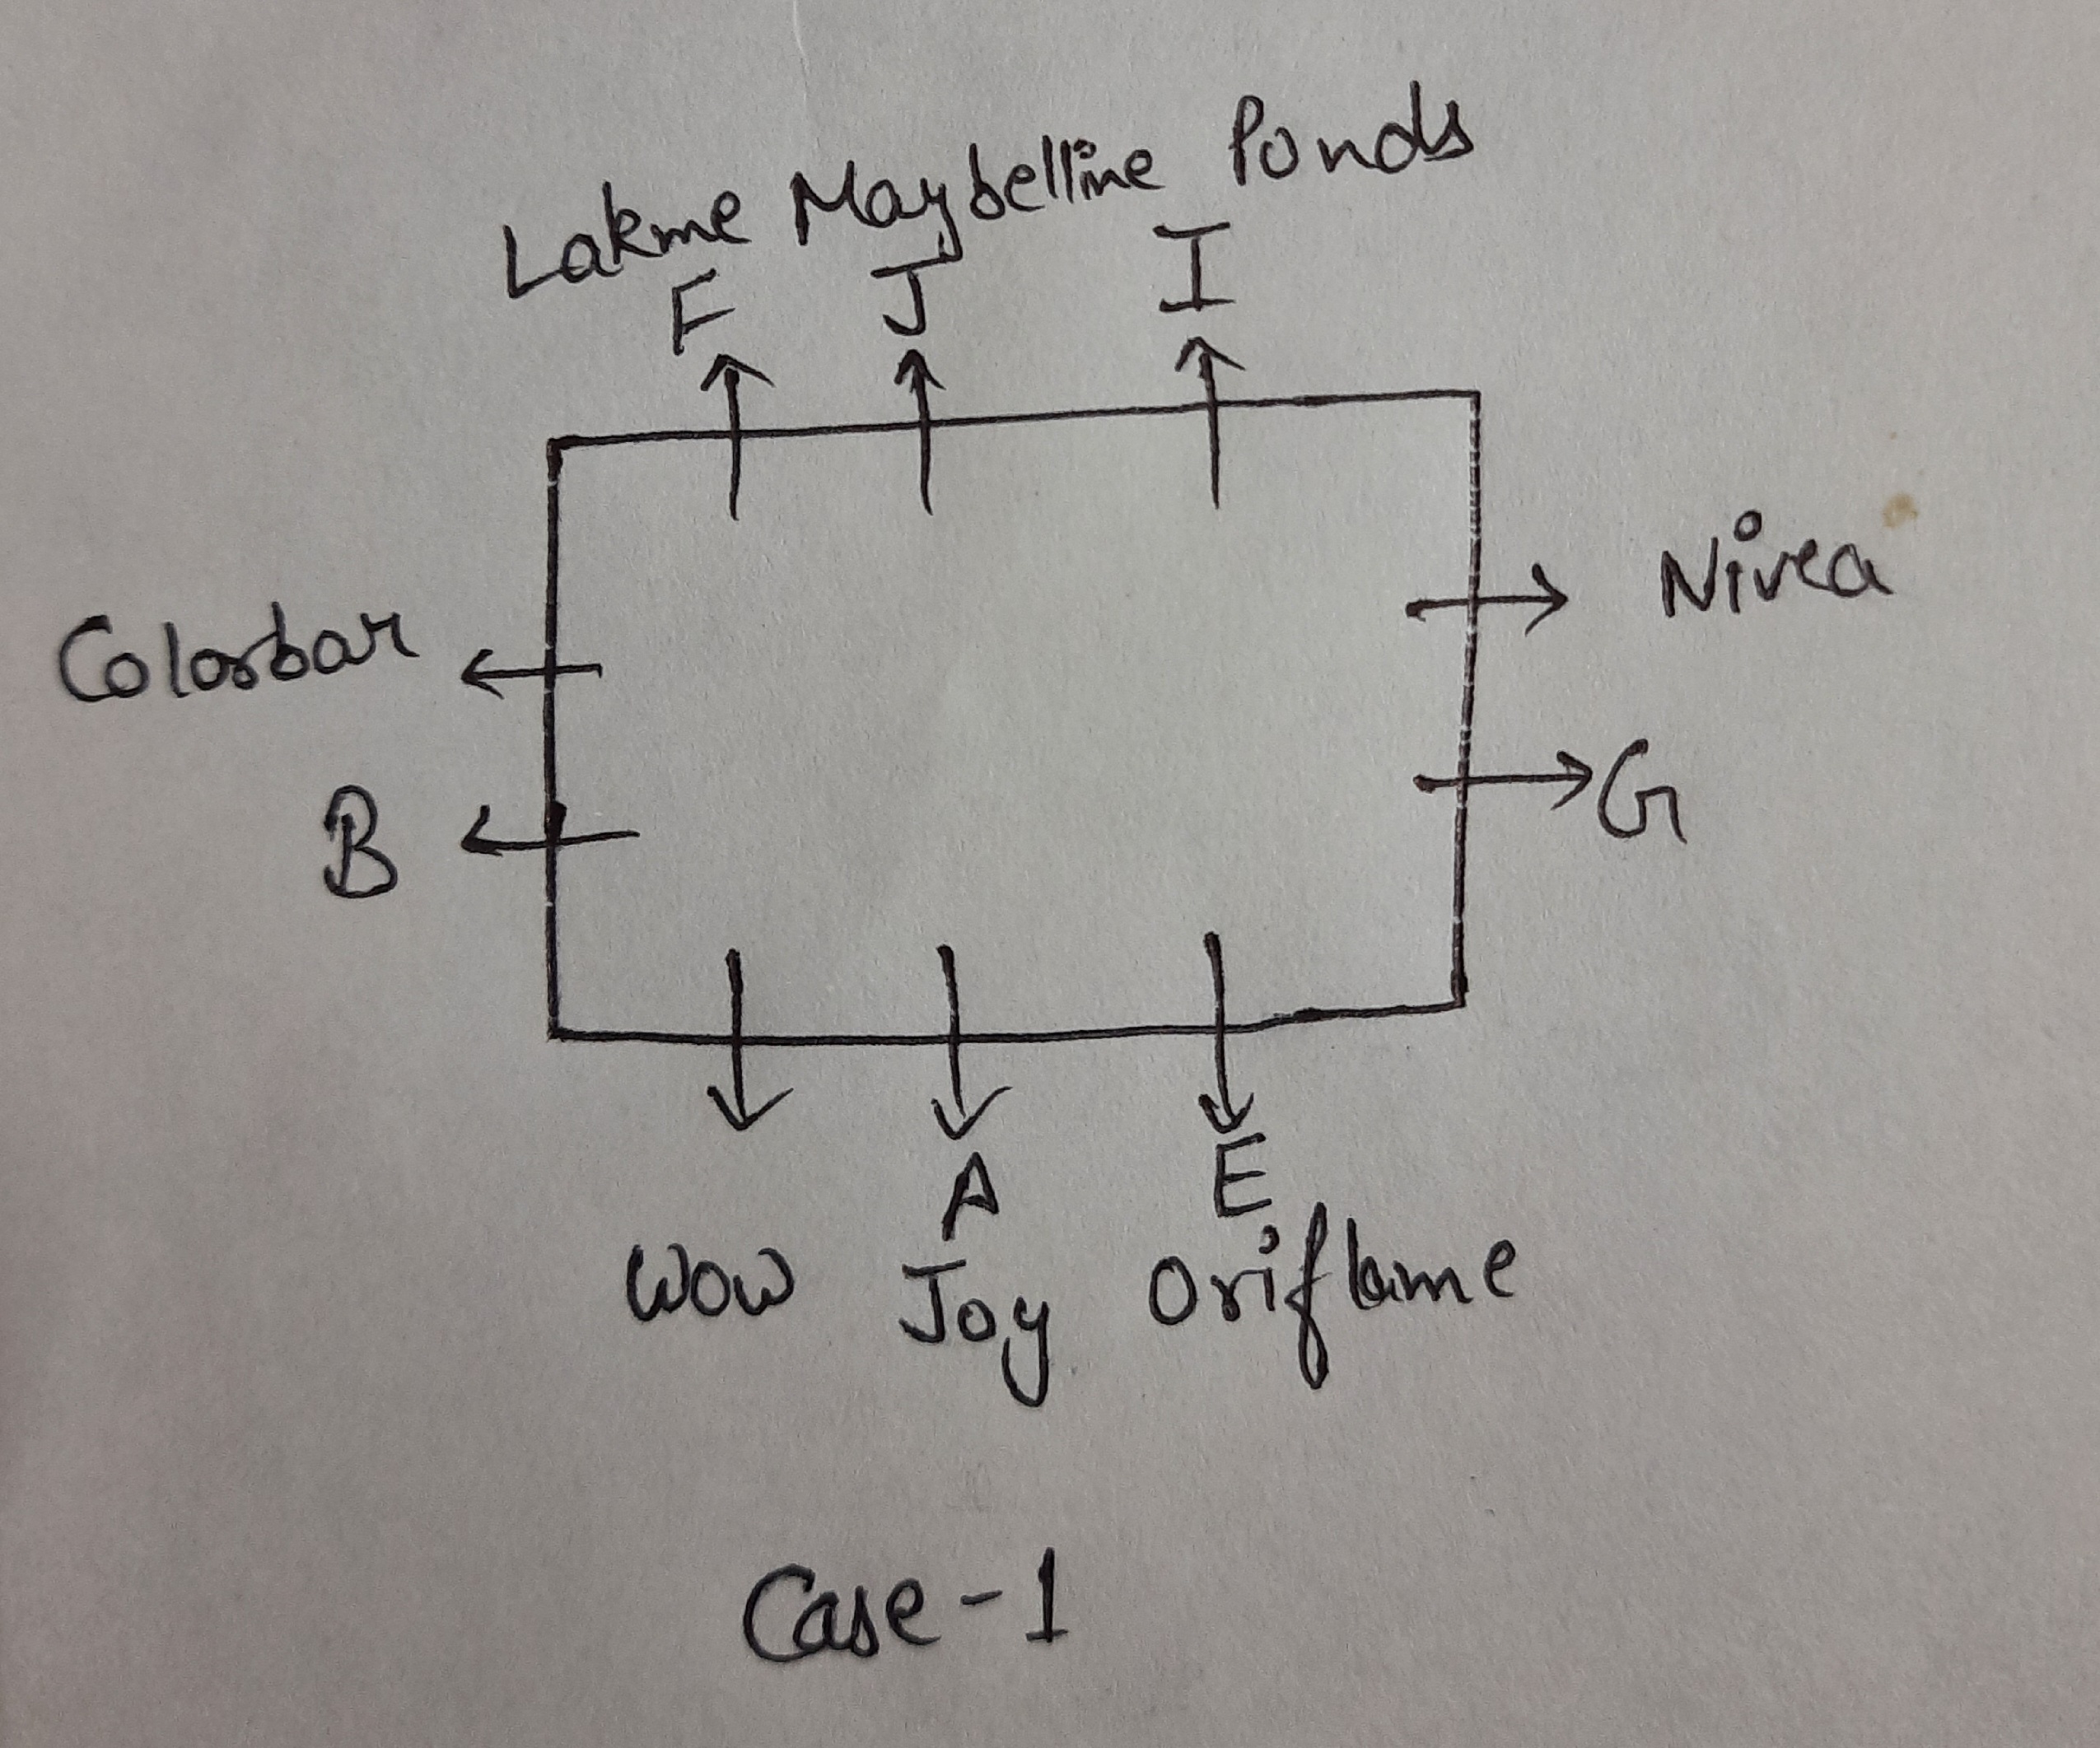 Lakme Maybelline Ponds
F J I
Nivea
Colorbar
G
B
A E
Wow Joy Oriflame
Case-1